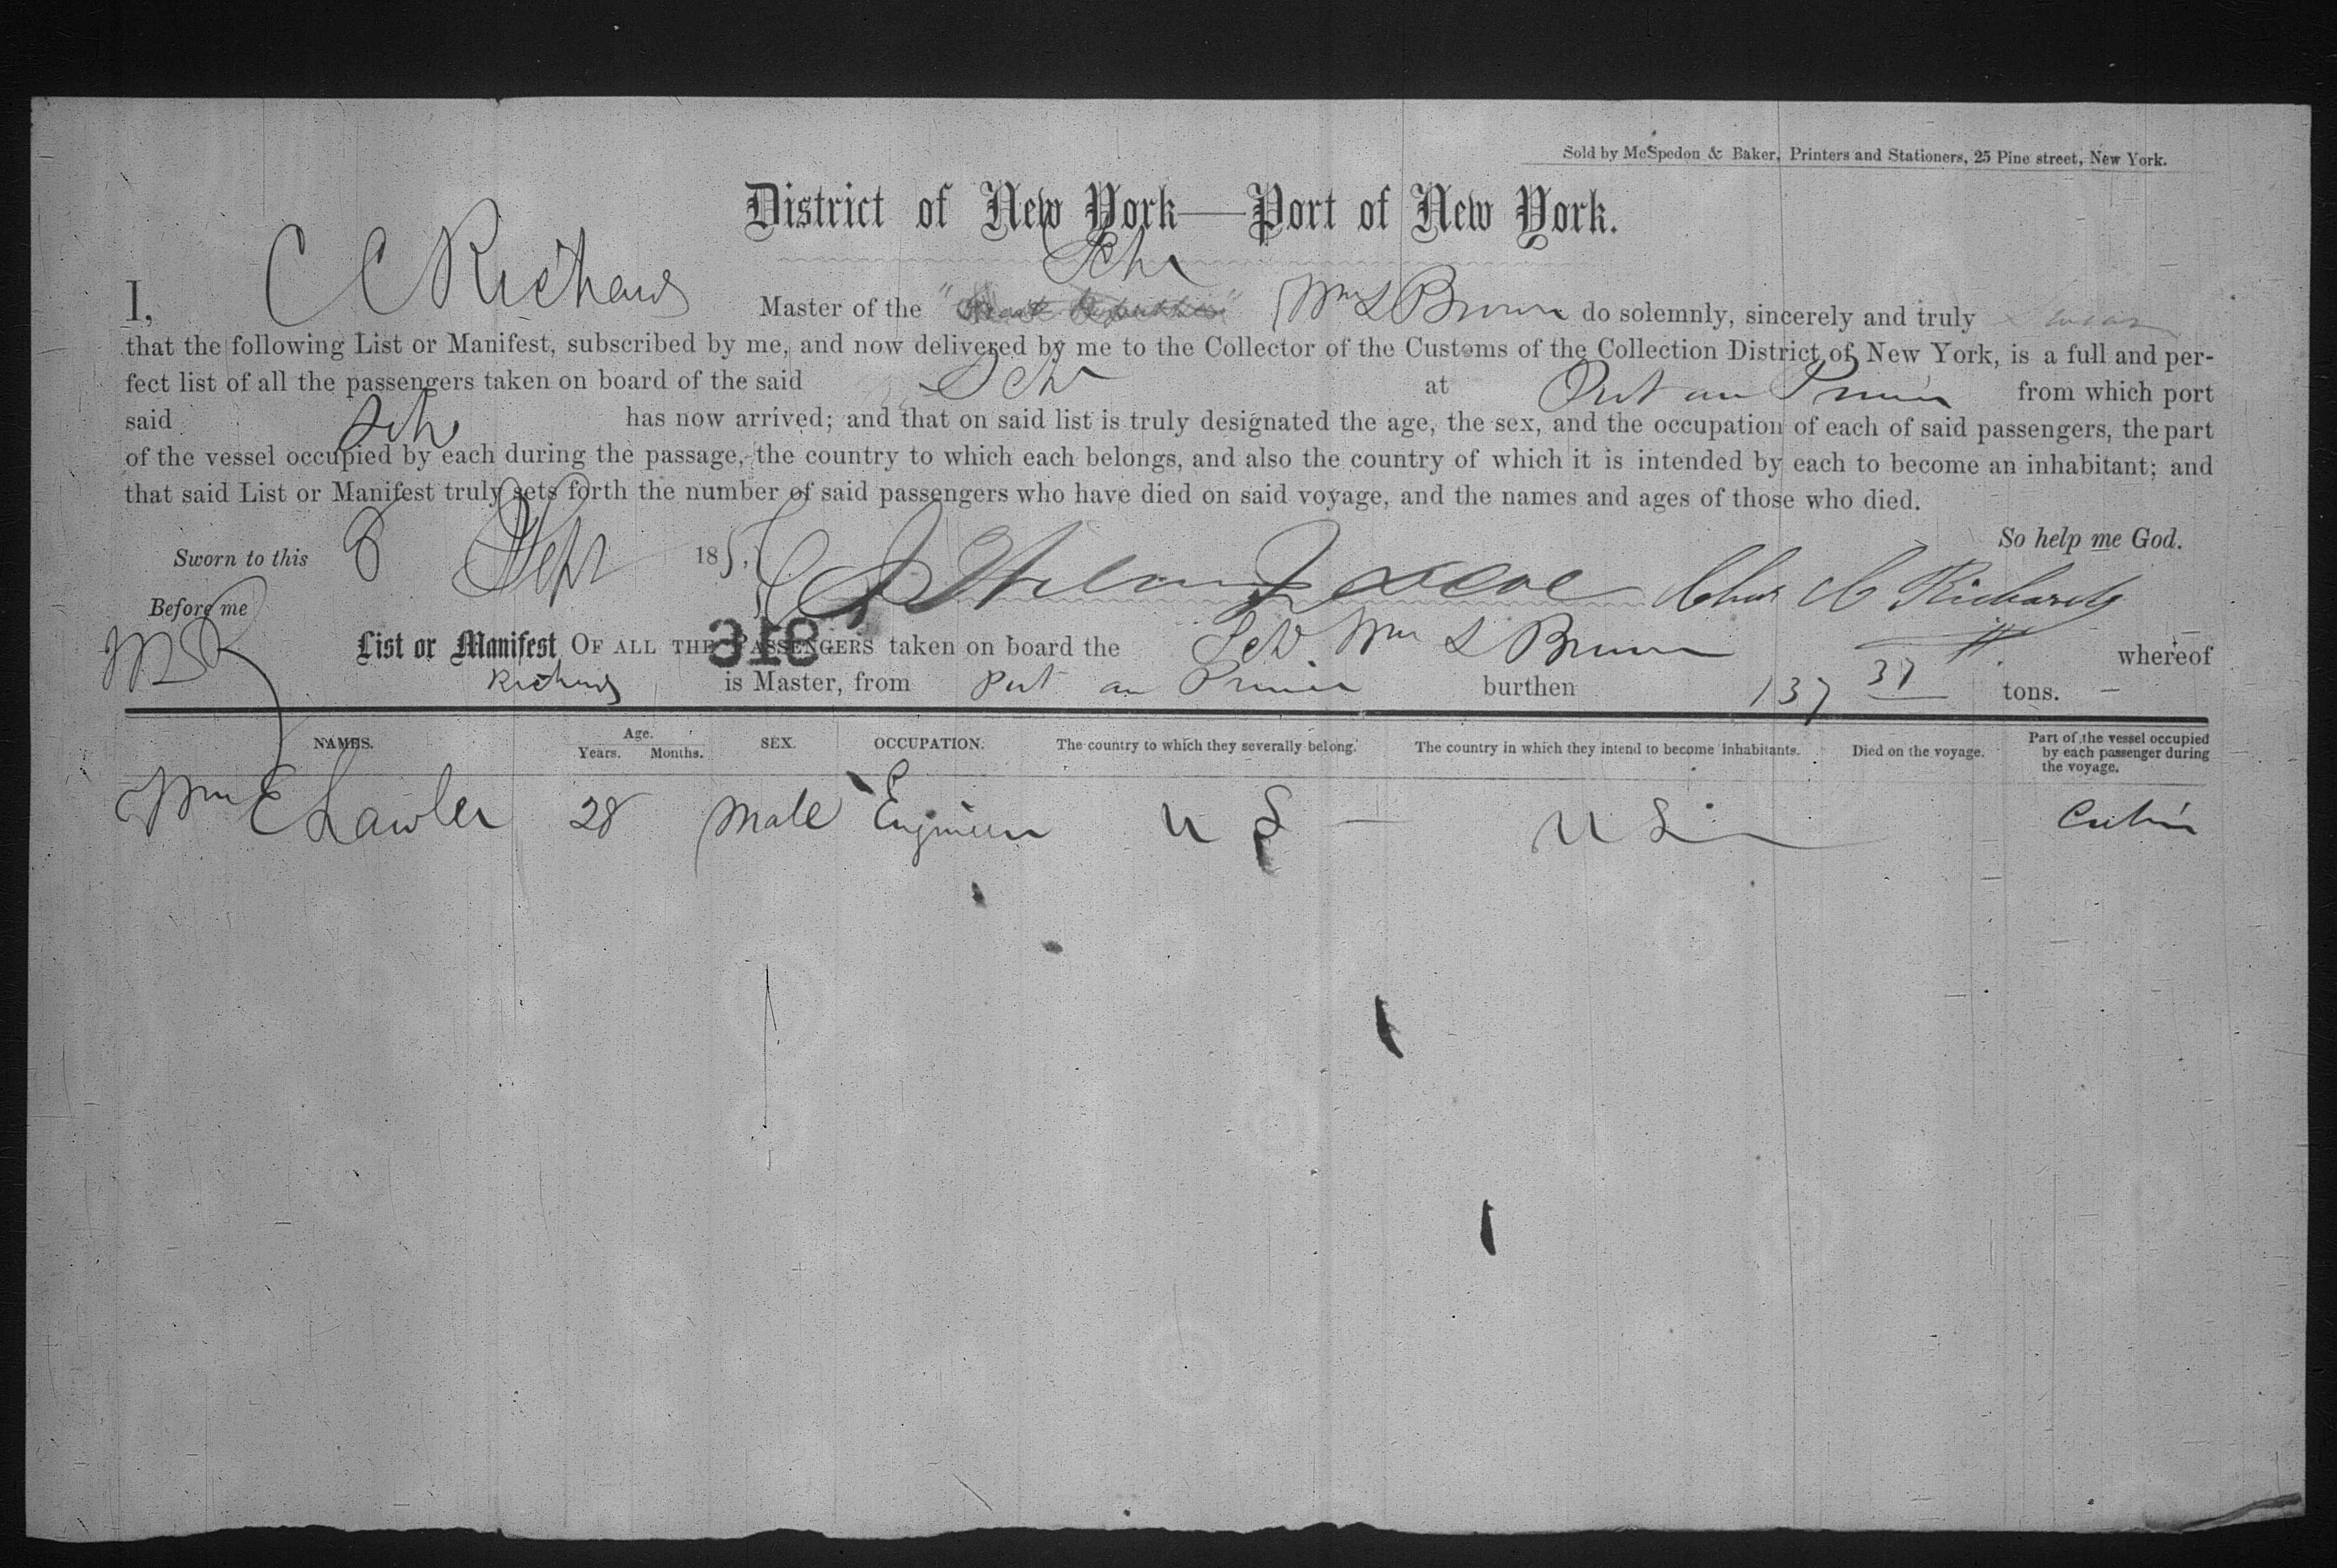 Sold by McSpedon & Baker, Printers and Stationers, 25 Pine street, New York.
District of New York—Port of New York.
Schr
I, C C Richards Master of the " " Wm L Brown do solemnly, sincerely and truly swear
that the following List or Manifest, subscribed by me, and now delivered by me to the Collector of the Customs of the Collection District of New York, is a full and per-
fect list of all the passengers taken on board of the said Schr at Port au Prince from which port
said Schr has now arrived; and that on said list is truly designated the age, the sex, and the occupation of each of said passengers, the part
of the vessel occupied by each during the passage, the country to which each belongs, and also the country of which it is intended by each to become an inhabitant; and
that said List or Manifest truly sets forth the number of said passengers who have died on said voyage, and the names and ages of those who died.
So help me God.
Sworn to this 8 Sept 185
Chas C Richards
Before me
318
List or Manifest OF ALL THE PASSENGERS taken on board the Schr Wm L Brown whereof
Richards is Master, from Port au Prince burthen 137 37 tons.
NAMES. Age. Years. Months. SEX. OCCUPATION. The country to which they severally belong. The country in which they intend to become inhabitants. Died on the voyage. Part of the vessel occupied by each passenger during the voyage.
Wm E Lawler 28 Male Engineer U S — U S Cabin